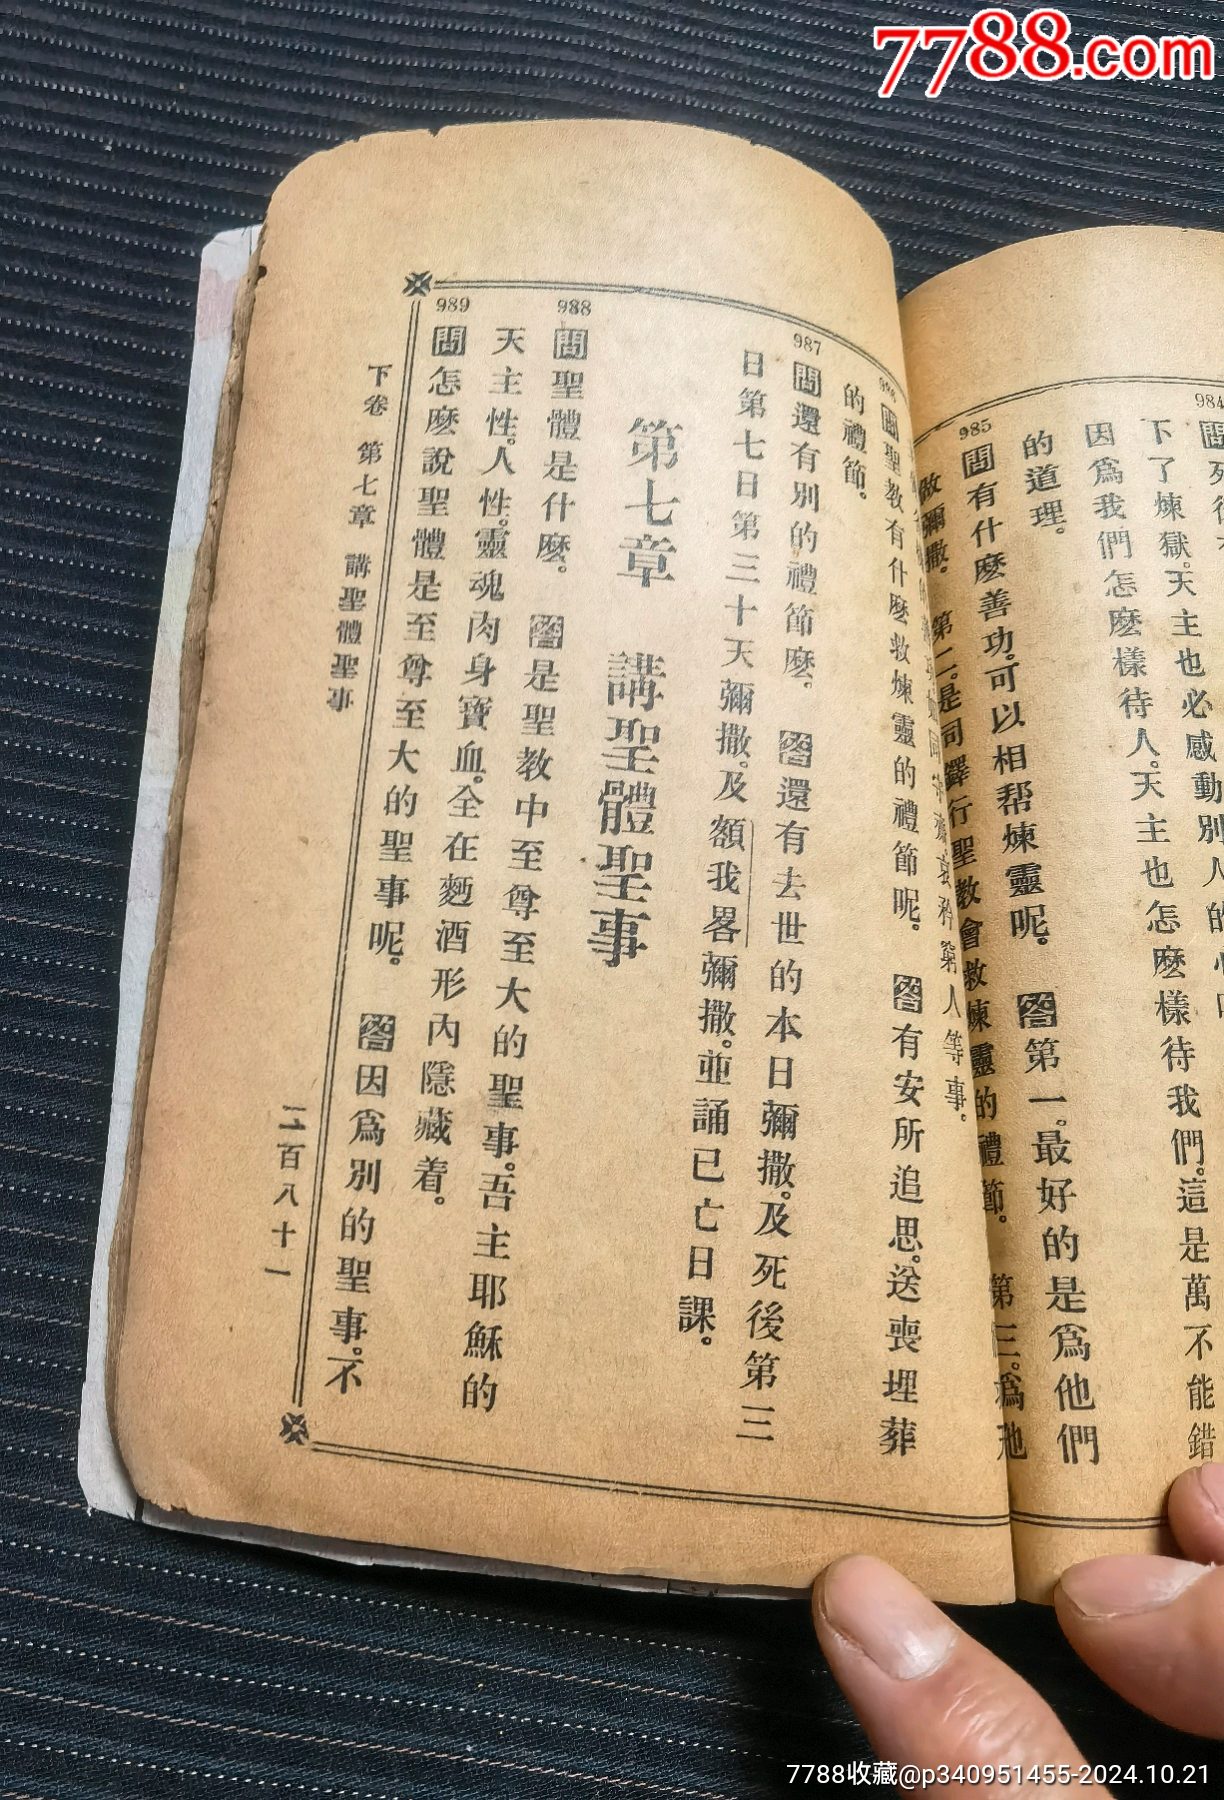 7788.com
984
下了煉獄。天主也必感動別人的
因爲我們怎麽樣待人。天主也怎麽樣待我們。這是萬不能錯
的道理。
985
問有什麽善功。可以相帮煉靈呢。 答第一。最好的是爲他們
獻彌撒。 第二。是同鐸行聖教會救煉靈的禮節。 第三。爲他
窮人等事。
問聖教有什麽救煉靈的禮節呢。 答有安所追思。送喪埋葬
的禮節。
987
問還有別的禮節麽。 答還有去世的本日彌撒。及死後第三
日第七日第三十天彌撒。及額我畧彌撒。並誦已亡日課。
第七章 講聖體聖事
988
問聖體是什麽。 答是聖教中至尊至大的聖事。吾主耶穌的
天主性。人性。靈魂肉身寶血。全在麪酒形內隱藏着。
989
問怎麽說聖體是至尊至大的聖事呢。 答因爲別的聖事。不
下卷 第七章 講聖體聖事
二百八十一
7788收藏@p340951455-2024.10.21